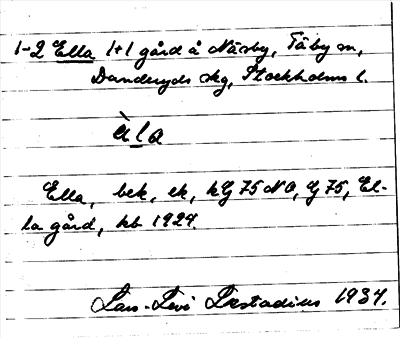 1-2 Ella 1+1 gård å Näsby, Täby sn,
Danderyds skg, Stockholms l.
èla
Ella, bek, ek, hG 75 NO, G 75, El-
la gård, kb 1924.
Lars-Levi Læstadius 1934.